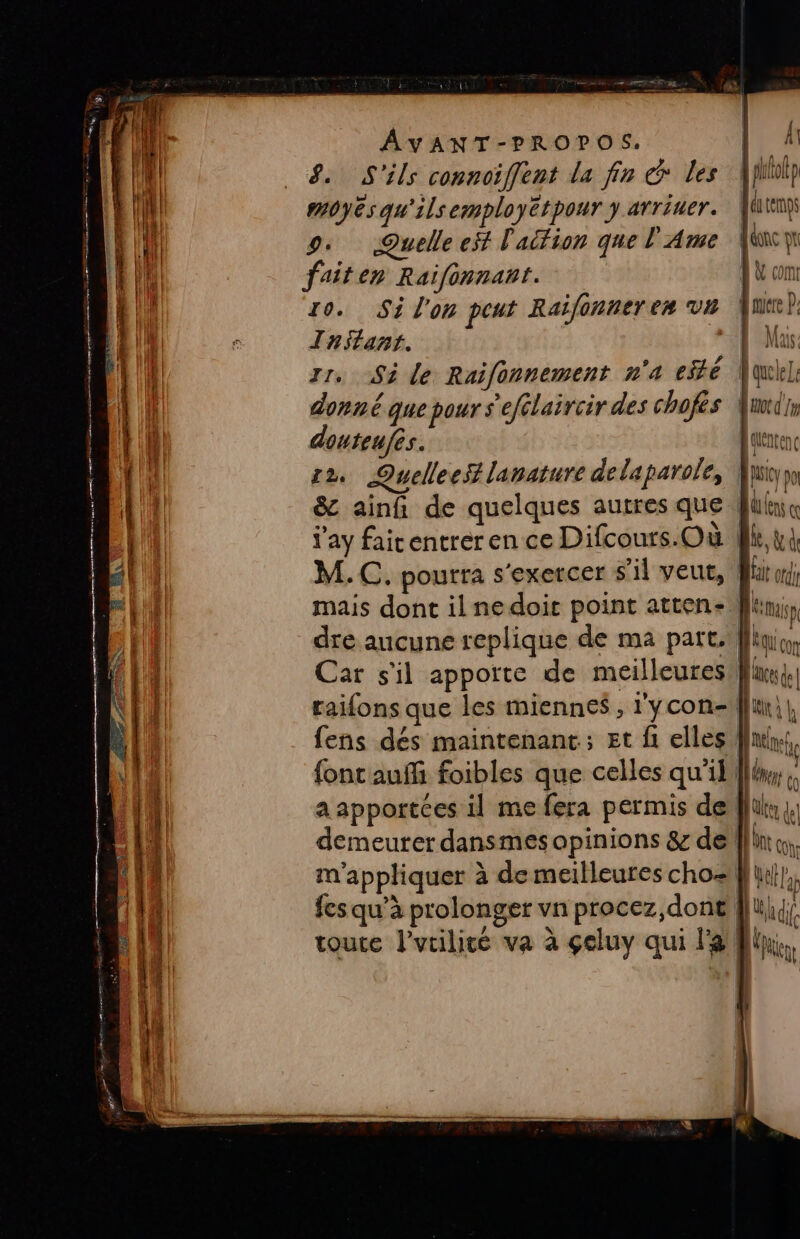 AVANT-PROPOS.
8. S'ils connoiſſent la fin & les
moyẽs qu'ils employẽt pour y arriuer.
9. Quelle eſt l'action que l'Ame
fait en Raiſonnant.
10. Si l'on peut Raiſonner en vn
Inſtant.
11. Si le Raiſonnement n'a eſté
donné que pour s'eſclaircir des choſes
douteuſes.
12. Quelle eſt la nature de la parole,
& ainſi de quelques autres que
i'ay fait entrer en ce Diſcours. Où
M. C. pourra s'exercer s'il veut,
mais dont il ne doit point atten-
dre aucune replique de ma part.
Car s'il apporte de meilleures
raiſons que les miennes, i'y con-
ſens dés maintenant; Et ſi elles
ſont auſſi foibles que celles qu'il
a apportées il me ſera permis de
demeurer dans mes opinions & de
m'appliquer à de meilleures cho-
ſes qu'à prolonger vn procez, dont
toute l'vtilité va à celuy qui l'a